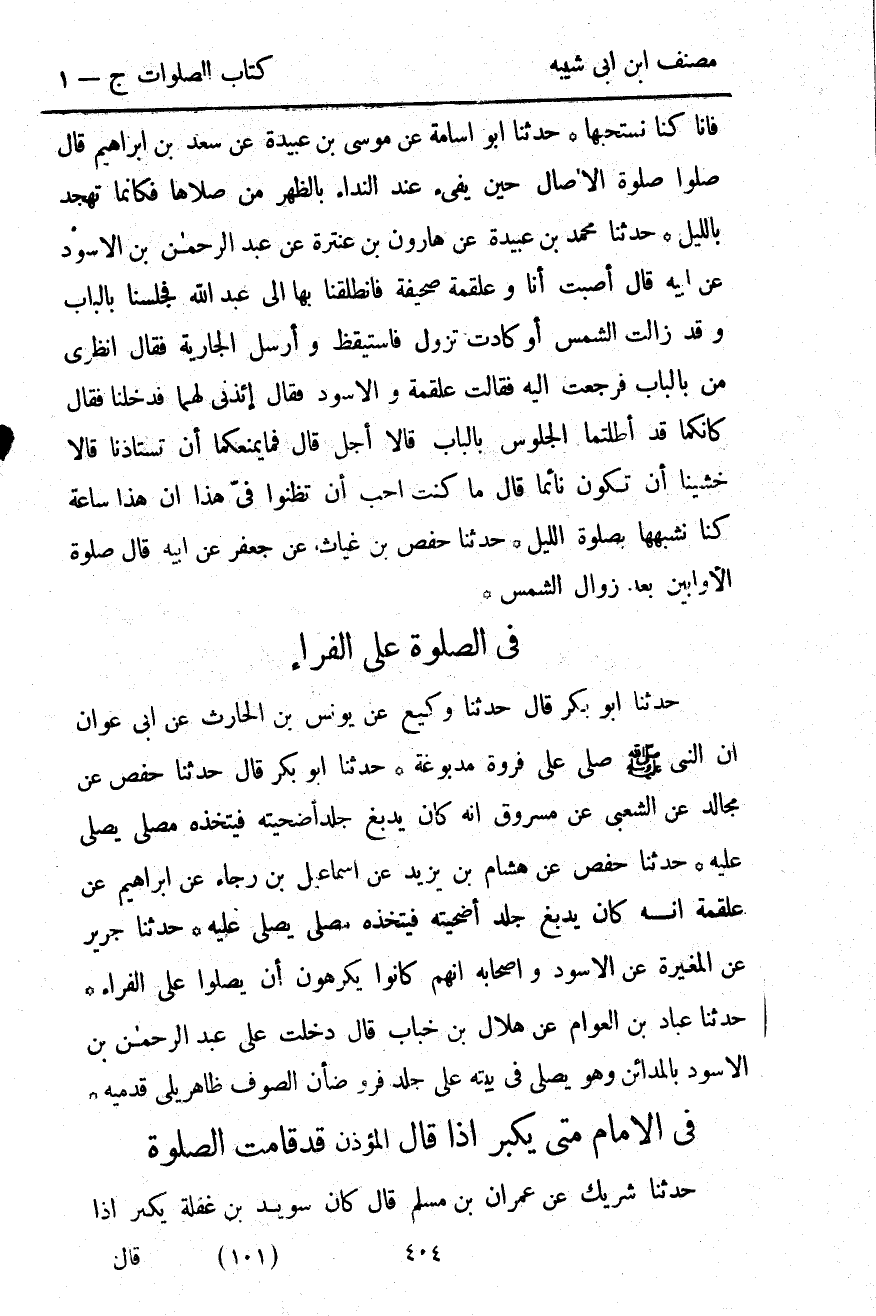 مصنف ابن ابى شيبه
كتاب الصلوات ج — ١
فانا كنا نستحبها ۞ حدثنا ابو اسامة عن موسى بن عبيدة عن سعد بن ابراهيم قال
صلوا صلوة الاصال حين يفىء عند النداء بالظهر من صلاها فكانما تهجد
بالليل ۞ حدثنا محمد بن عبيدة عن هارون بن عنترة عن عبد الرحمٰن بن الاسود
عن ابيه قال أصبت أنا و علقمة صحيفة فانطلقنا بها الى عبد الله فجلسنا بالباب
و قد زالت الشمس أو كادت تزول فاستيقظ و أرسل الجارية فقال انظرى
من بالباب فرجعت اليه فقالت علقمة و الاسود فقال إئذنى لهما فدخلنا فقال
كانكما قد أطلتما الجلوس بالباب قالا أجل قال فمايمنعكما أن تستاذنا قالا
خشينا أن تكون نائما قال ما كنت احب أن تظنوا فىّ هذا ان هذا ساعة
كنا نشبهها بصلوة الليل ۞ حدثنا حفص بن غياث عن جعفر عن ابيه قال صلوة
الأوابين بعد زوال الشمس ۞
فى الصلوة على الفراء
حدثنا ابو بكر قال حدثنا وكيع عن يونس بن الحارث عن ابى عوان
ان النبى ﷺ صلى على فروة مدبوغة ۞ حدثنا ابو بكر قال حدثنا حفص عن
مجالد عن الشعبى عن مسروق انه كان يدبغ جلدأضحيته فيتخذه مصلى يصلى
عليه ۞ حدثنا حفص عن هشام بن يزيد عن اسماعيل بن رجاء عن ابراهيم عن
علقمة انه كان يدبغ جلد أضحيته فيتخذه مصلى يصلى عليه ۞ حدثنا جرير
عن المغيرة عن الاسود و اصحابه انهم كانوا يكرهون أن يصلوا على الفراء ۞
حدثنا عباد بن العوام عن هلال بن خباب قال دخلت على عبد الرحمٰن بن
الاسود بالمدائن وهو يصلى فى بيته على جلد فرو ضأن الصوف ظاهريلى قدميه ۞
فى الامام متى يكبر اذا قال المؤذن قدقامت الصلوة
حدثنا شريك عن عمران بن مسلم قال كان سويد بن غفلة يكبر اذا
٤٠٤ (١٠١) قال